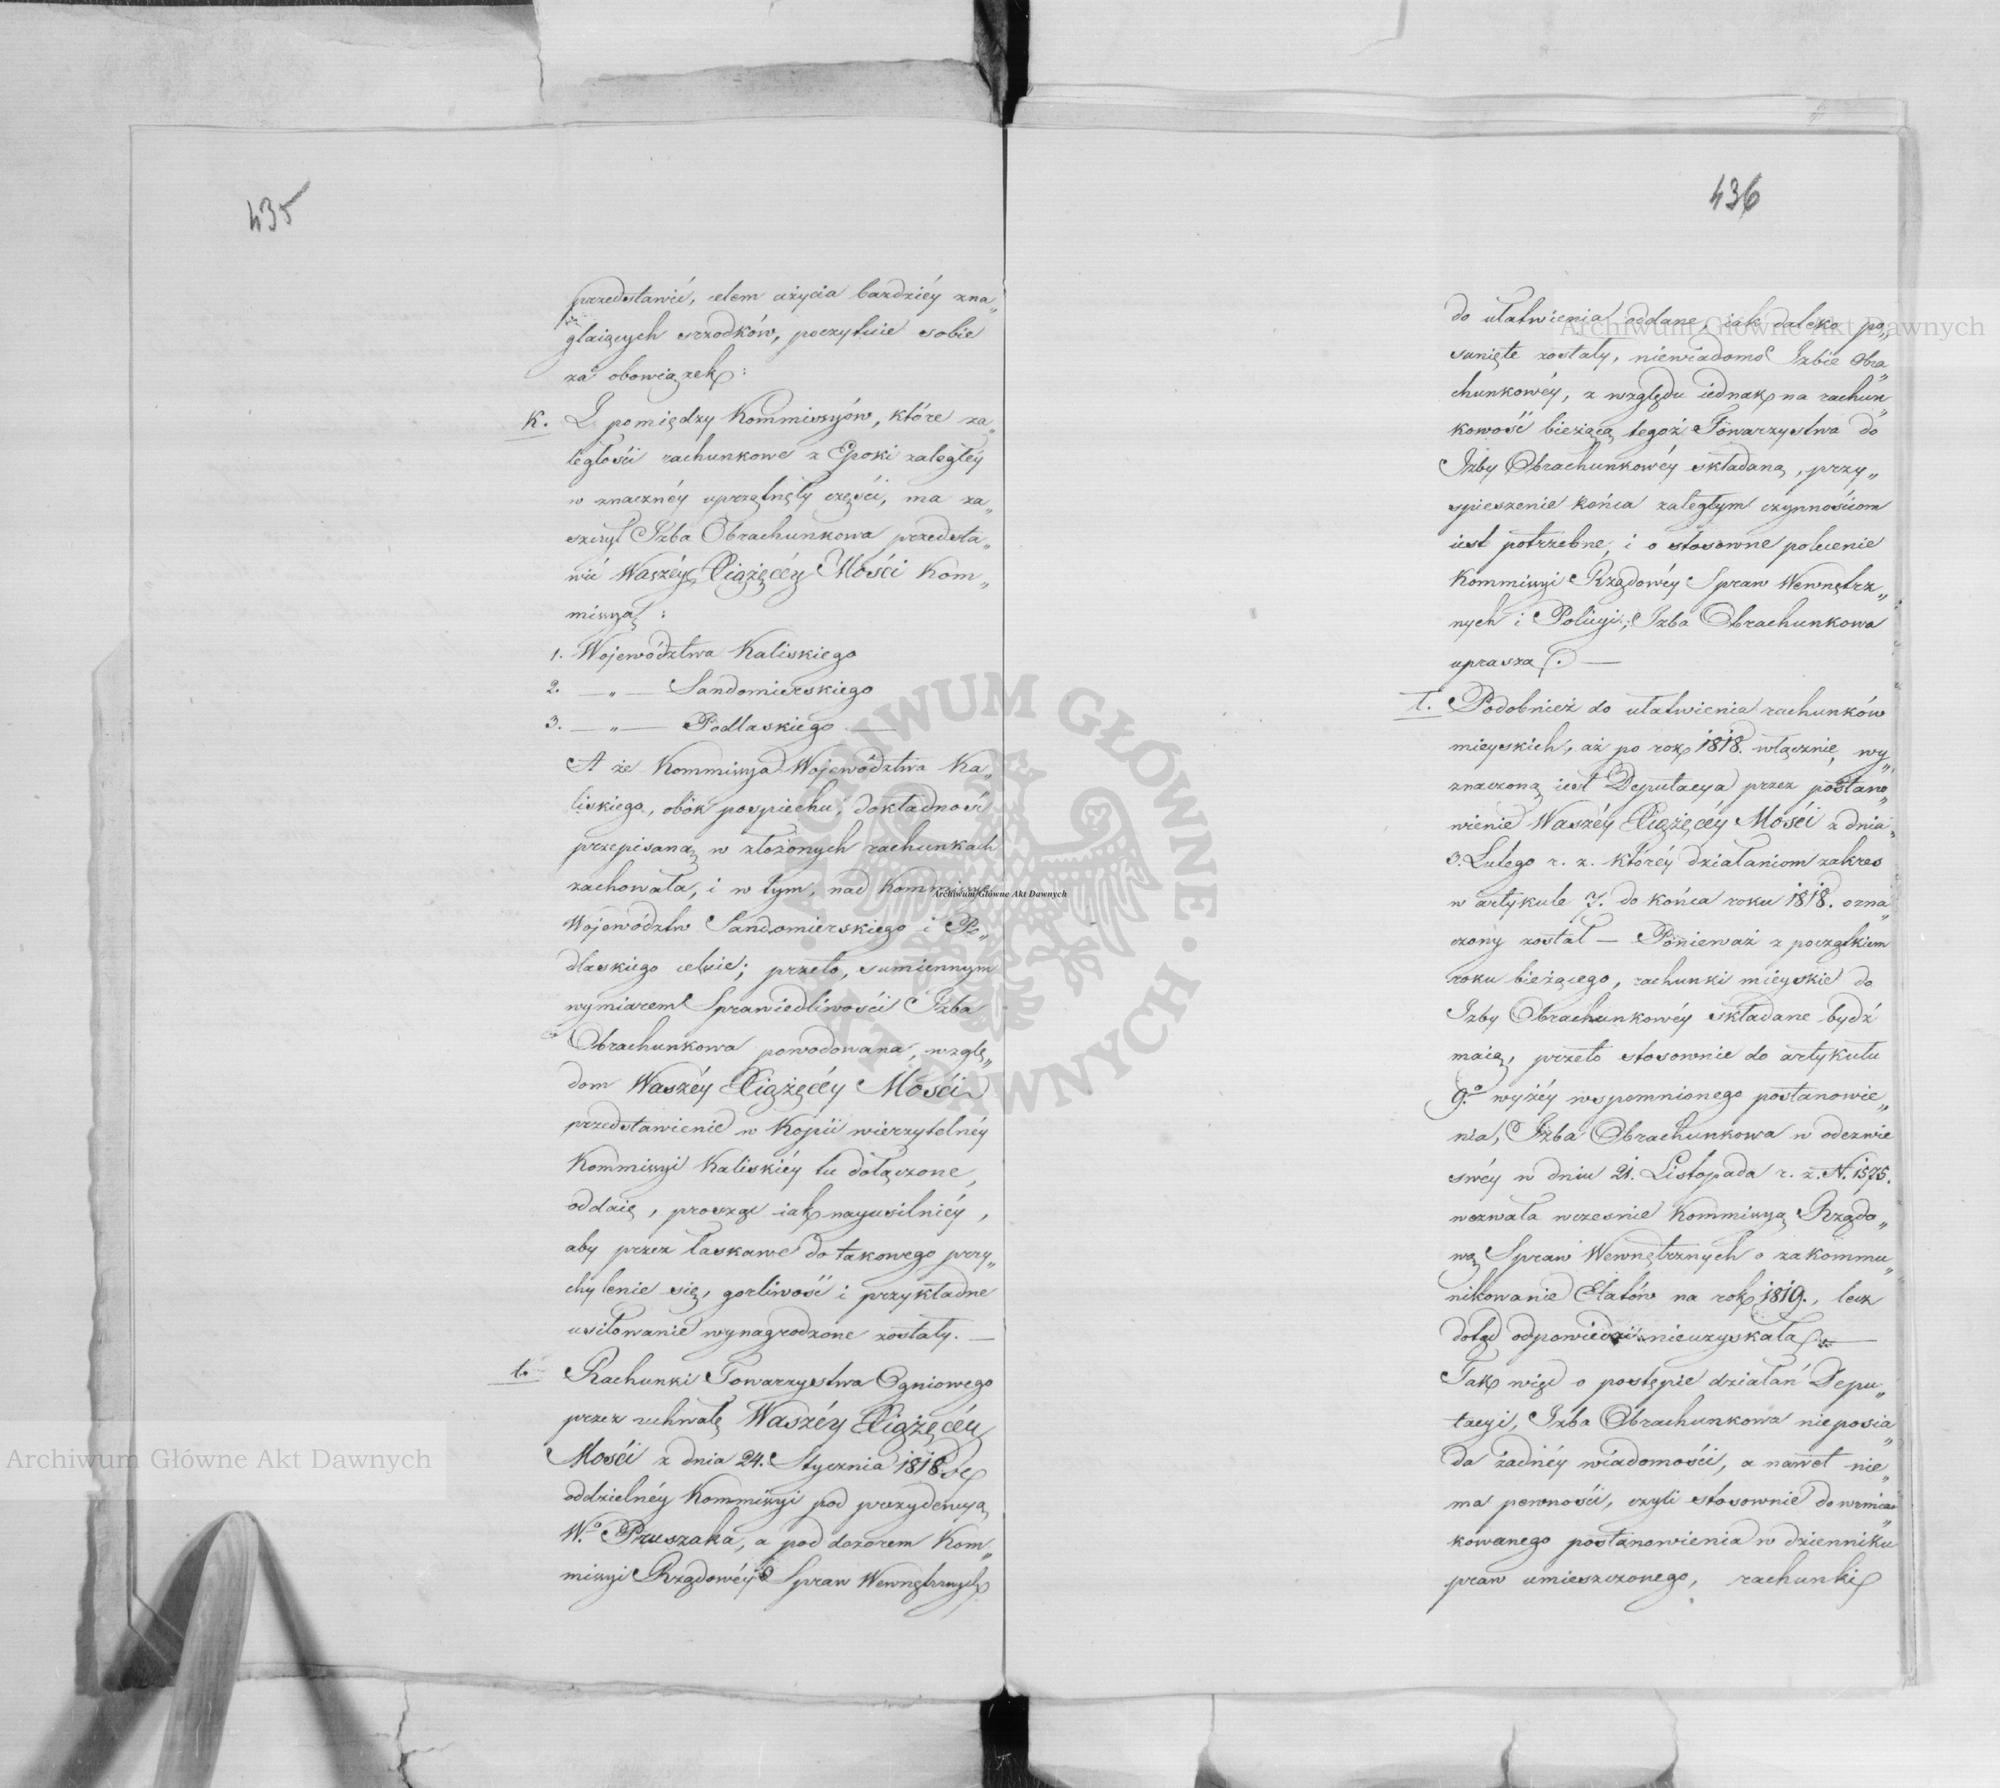 435
przedstawić, celem użycia bardziéy zna„
glaiących srzodków, poczytuie sobie
za obowiązek:
K. Z pomiędzy Kommissyów, które za„
ległości rachunkowe z Epoki zaległéy
w znacznéy uprzątnęły części, ma za„
szczyt Izba Obrachunkowa przedsta„
wić Waszéy Xiążęcéy Mości Kom„
missyą:
1. Województwa Kaliskiego
2. —„— Sandomierskiego
3. —„— Podlaskiego —
A że Kommissya Województwa Ka„
liskiego, obók pospiechu, dokładność
przepisaną w złożonych rachunkach
zachowała, i w tym, nad Kommissye
Województw Sandomierskiego i Po„
dlaskiego celuie; przeto, sumiennym
wymiarem Sprawiedliwości Izba
Obrachunkowa powodowana, wzglę„
dom Waszéy Xiążęcéy Mości
przedstawienie w Kopii wierzytelnéy
Kommissyi Kaliskiéy tu dołączone,
oddaię, prosząc iak nayusilniéy,
aby przez łaskawe do takowego przy„
chylenie się, gorliwość i przykładne
usiłowanie wynagrodzone zostały. —
Ł. Rachunki Towarzystwa Ogniowego
przez uchwałę Waszéy Xiążęcéy
Mości z dnia 24. Stycznia 1818.
oddzielnéy Kommissyi pod prezydencyą
W.º Pruszaka, a pod dozorem Kom„
missyi Rządowéy Spraw Wewnętrznych
436
do ułatwienia oddane, iak daleko po„
sunięte zostały, niewiadomo Izbie Obra„
chunkowéy, z względu iednak na rachun„
kowość bieżącą tegoż Towarzystwa do
Izby Obrachunkowéy składaną, przy„
spieszenie końca zaległym czynnościom
iest potrzebne, i o stosowne polecenie
Kommissyi Rządowéy Spraw Wewnętrz„
nych i Policyi; Izba Obrachunkowa
uprasza. —
Podobnież do ułatwienia rachunków
mieyskich, aż po rok 1818. włącznie, wy„
znaczoną iest Deputacya przez postano„
wienie Waszéy Xiążęcéy Mości z dnia
3. Lutego r. z. któréy działaniom zakres
w artykule 7. do końca roku 1818. ozna„
czony został — Ponieważ z początkiem
roku bieżącego, rachunki mieyskie do
Izby Obrachunkowéy składane bydź
maią, przeto stosownie do artykułu
9.º wyżéy wspomnionego postanowie„
nia, Izba Obrachunkowa w odezwie
swéy w dniu 21. Listopada r. z. N. 1575.
wezwała wczesnie Kommissyą Rządo„
wą Spraw Wewnętrznych o zakommu„
nikowanie Etatów na rok 1819., lecz
dotąd odpowiedzi nieuzyskała —
Tak więc o postępie działań Depu„
tacyi, Izba Obrachunkowa nieposia„
da żadnéy wiadomości, a nawet nie„
ma pewności, czyli stosownie do wzmian„
kowanego postanowienia w dzienniku
praw umieszczonego, rachunki
Archiwum Główne Akt Dawnych
Archiwum Główne Akt Dawnych
Archiwum Główne Akt Dawnych
ARCHIWUM GŁÓWNE AKT DAWNYCH